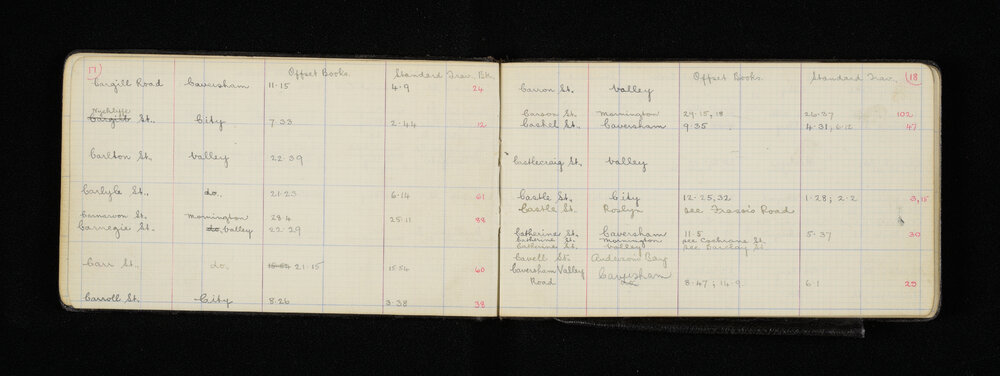 17) Offset Books. Standard Trav. Bk.
Cargill Road Caversham 11.15 4.9 24
Wychliffe
Cargill St. City 7.33 2.44 12
Carlton St. Valley 22.39
Carlyle St. do. 21.23 6.14 61
Carnarvon St. Mornington 28.4 25.11 88
Carnegie St. do, Valley 22.29
Carr St. do. 21.15 15.54 60
Carroll St. City 8.26 3.38 38
Offset Books. Standard Trav. (18
Carron St. Valley
Carson St. Mornington 29.15, 18 26.37 102
Cashel St. Caversham 9.35 4.31, 6.12 47
Castlecraig St. Valley
Castle St. City 12.25, 32 1.28; 2.2 3, 15
Castle St. Roslyn see Fraser's Road
Catherine St. Caversham 11.5 5.37 30
Catherine St. Mornington see Cochrane St.
Catherine St. Valley see Barclay St.
Cavell St. Anderson's Bay
Caversham Valley Caversham
Road do. 8.47; 14.9 6.1 29